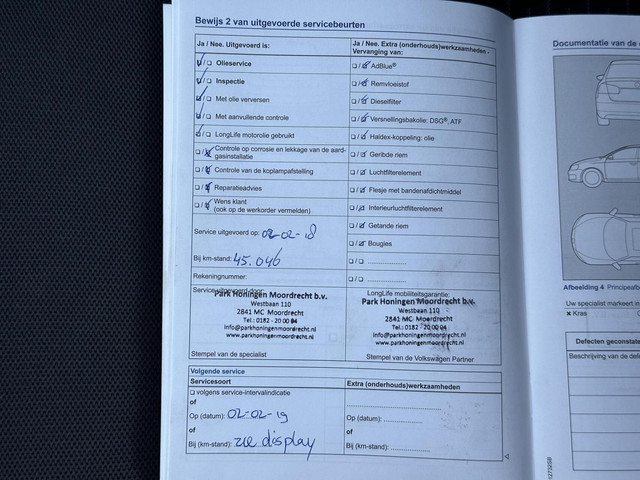 Bewijs 2 van uitgevoerde servicebeurten
Ja / Nee. Uitgevoerd is:
Olieservice
Inspectie
Met olie verversen
Met aanvullende controle
LongLife motorolie gebruikt
Controle op corrosie en lekkage van de aard-
gasinstallatie
Controle van de koplampafstelling
Reparatieadvies
Wens klant
(ook op de werkorder vermelden)
Service uitgevoerd op: 02-02-18
Bij km-stand: 45.046
Rekeningnummer:
Service uitgevoerd door:
Park Honingen Moordrecht b.v.
Westbaan 110
2841 MC Moordrecht
Tel.: 0182 - 20 00 04
info@parkhoningenmoordrecht.nl
www.parkhoningenmoordrecht.nl
Stempel van de specialist
Ja / Nee. Extra (onderhouds)werkzaamheden -
Vervanging van:
AdBlue®
Remvloeistof
Dieselfilter
Versnellingsbakolie: DSG®, ATF
Haldex-koppeling: olie
Geribde riem
Luchtfilterelement
Flesje met bandenafdichtmiddel
Interieurluchtfilterelement
Getande riem
Bougies
LongLife mobiliteitsgarantie:
Park Honingen Moordrecht b.v.
Westbaan 110
2841 MC Moordrecht
Tel.: 0182 - 20 00 04
info@parkhoningenmoordrecht.nl
www.parkhoningenmoordrecht.nl
Stempel van de Volkswagen Partner
Volgende service
Servicesoort
volgens service-intervalindicatie
of
Op (datum): 02-02-19
of
Bij (km-stand): zie display
Extra (onderhouds)werkzaamheden
Op (datum):
of
Bij (km-stand):
Documentatie van de
Afbeelding 4 Principeafbe
Uw specialist markeert in
× Kras
Defecten geconstate
Beschrijving van de de